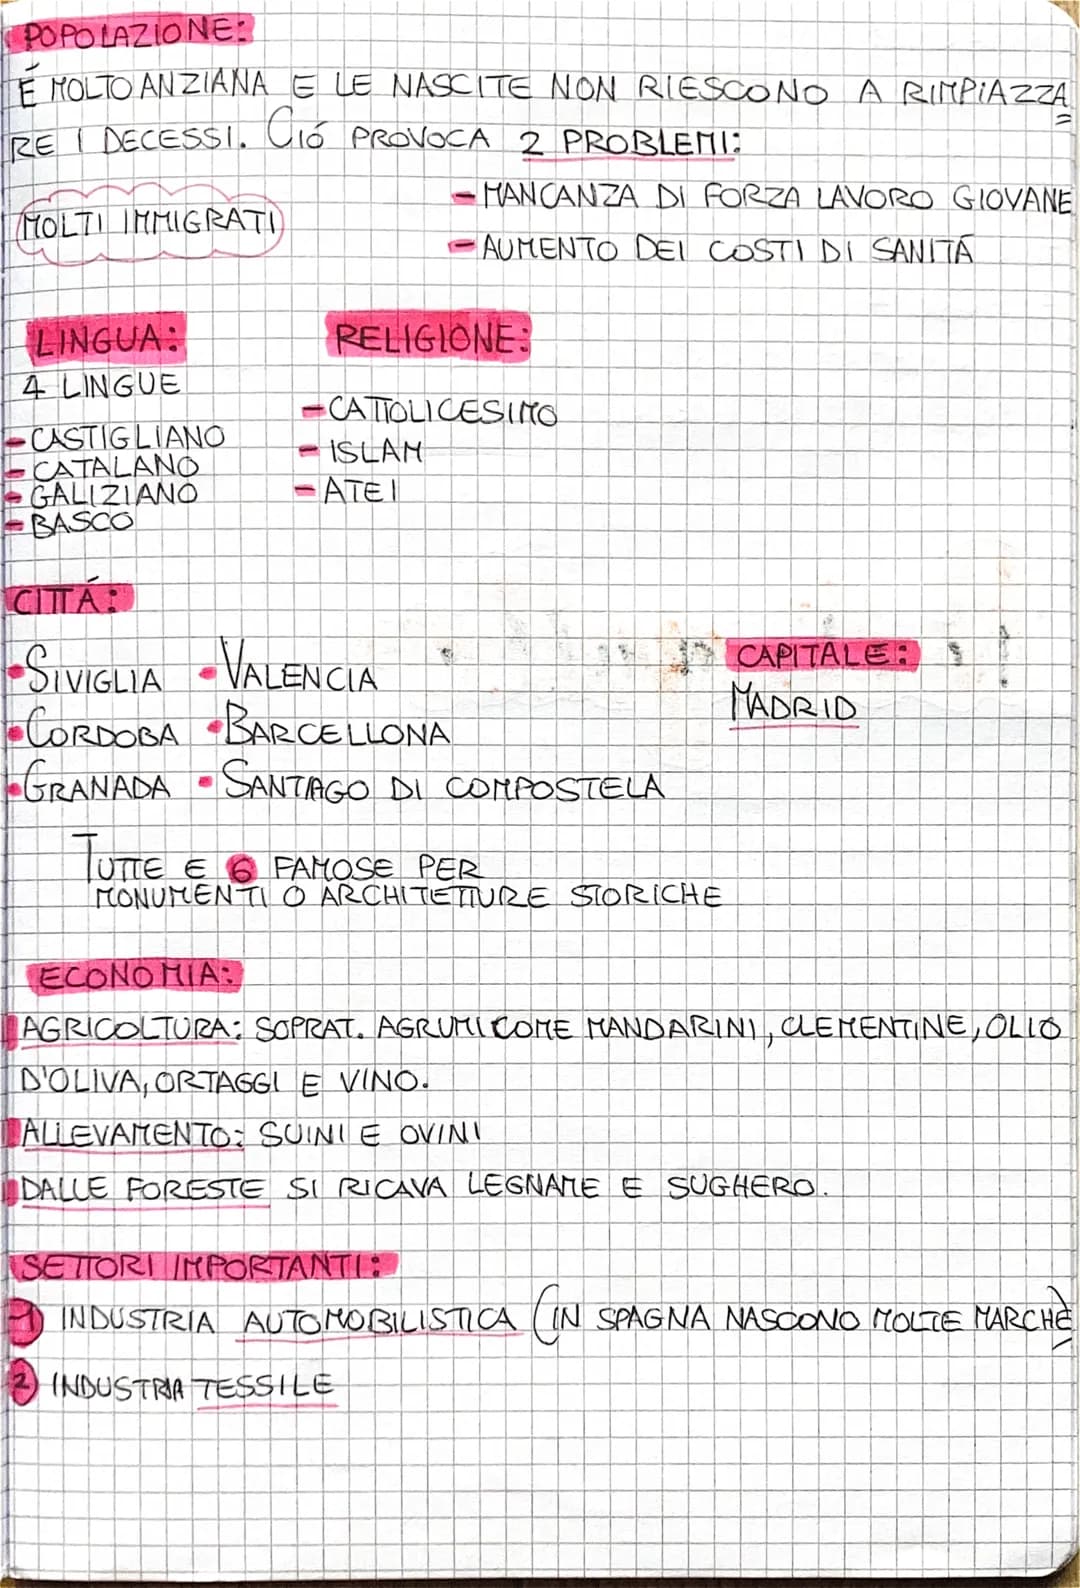 POPOLAZIONE:
É MOLTO ANZIANA E LE NASCITE NON RIESCONO A RIMPIAZZA=
RE I DECESSI. CIÓ PROVOCA 2 PROBLEMI:
- MANCANZA DI FORZA LAVORO GIOVANE
MOLTI IMMIGRATI
- AUMENTO DEI COSTI DI SANITÁ
LINGUA:
4 LINGUE
- CASTIGLIANO
- CATALANO
- GALIZIANO
- BASCO
RELIGIONE:
- CATTOLICESIMO
- ISLAM
- ATEI
CITTÁ:
• SIVIGLIA • VALENCIA
• CORDOBA • BARCELLONA
• GRANADA • SANTIAGO DI COMPOSTELA
CAPITALE:
MADRID
TUTTE E 6 FAMOSE PER
MONUMENTI O ARCHITETTURE STORICHE
ECONOMIA:
AGRICOLTURA: SOPRAT. AGRUMI COME MANDARINI, CLEMENTINE, OLIO
D'OLIVA, ORTAGGI E VINO.
ALLEVAMENTO: SUINI E OVINI
DALLE FORESTE SI RICAVA LEGNAME E SUGHERO.
SETTORI IMPORTANTI:
1 INDUSTRIA AUTOMOBILISTICA (IN SPAGNA NASCONO MOLTE MARCHE)
2 INDUSTRIA TESSILE